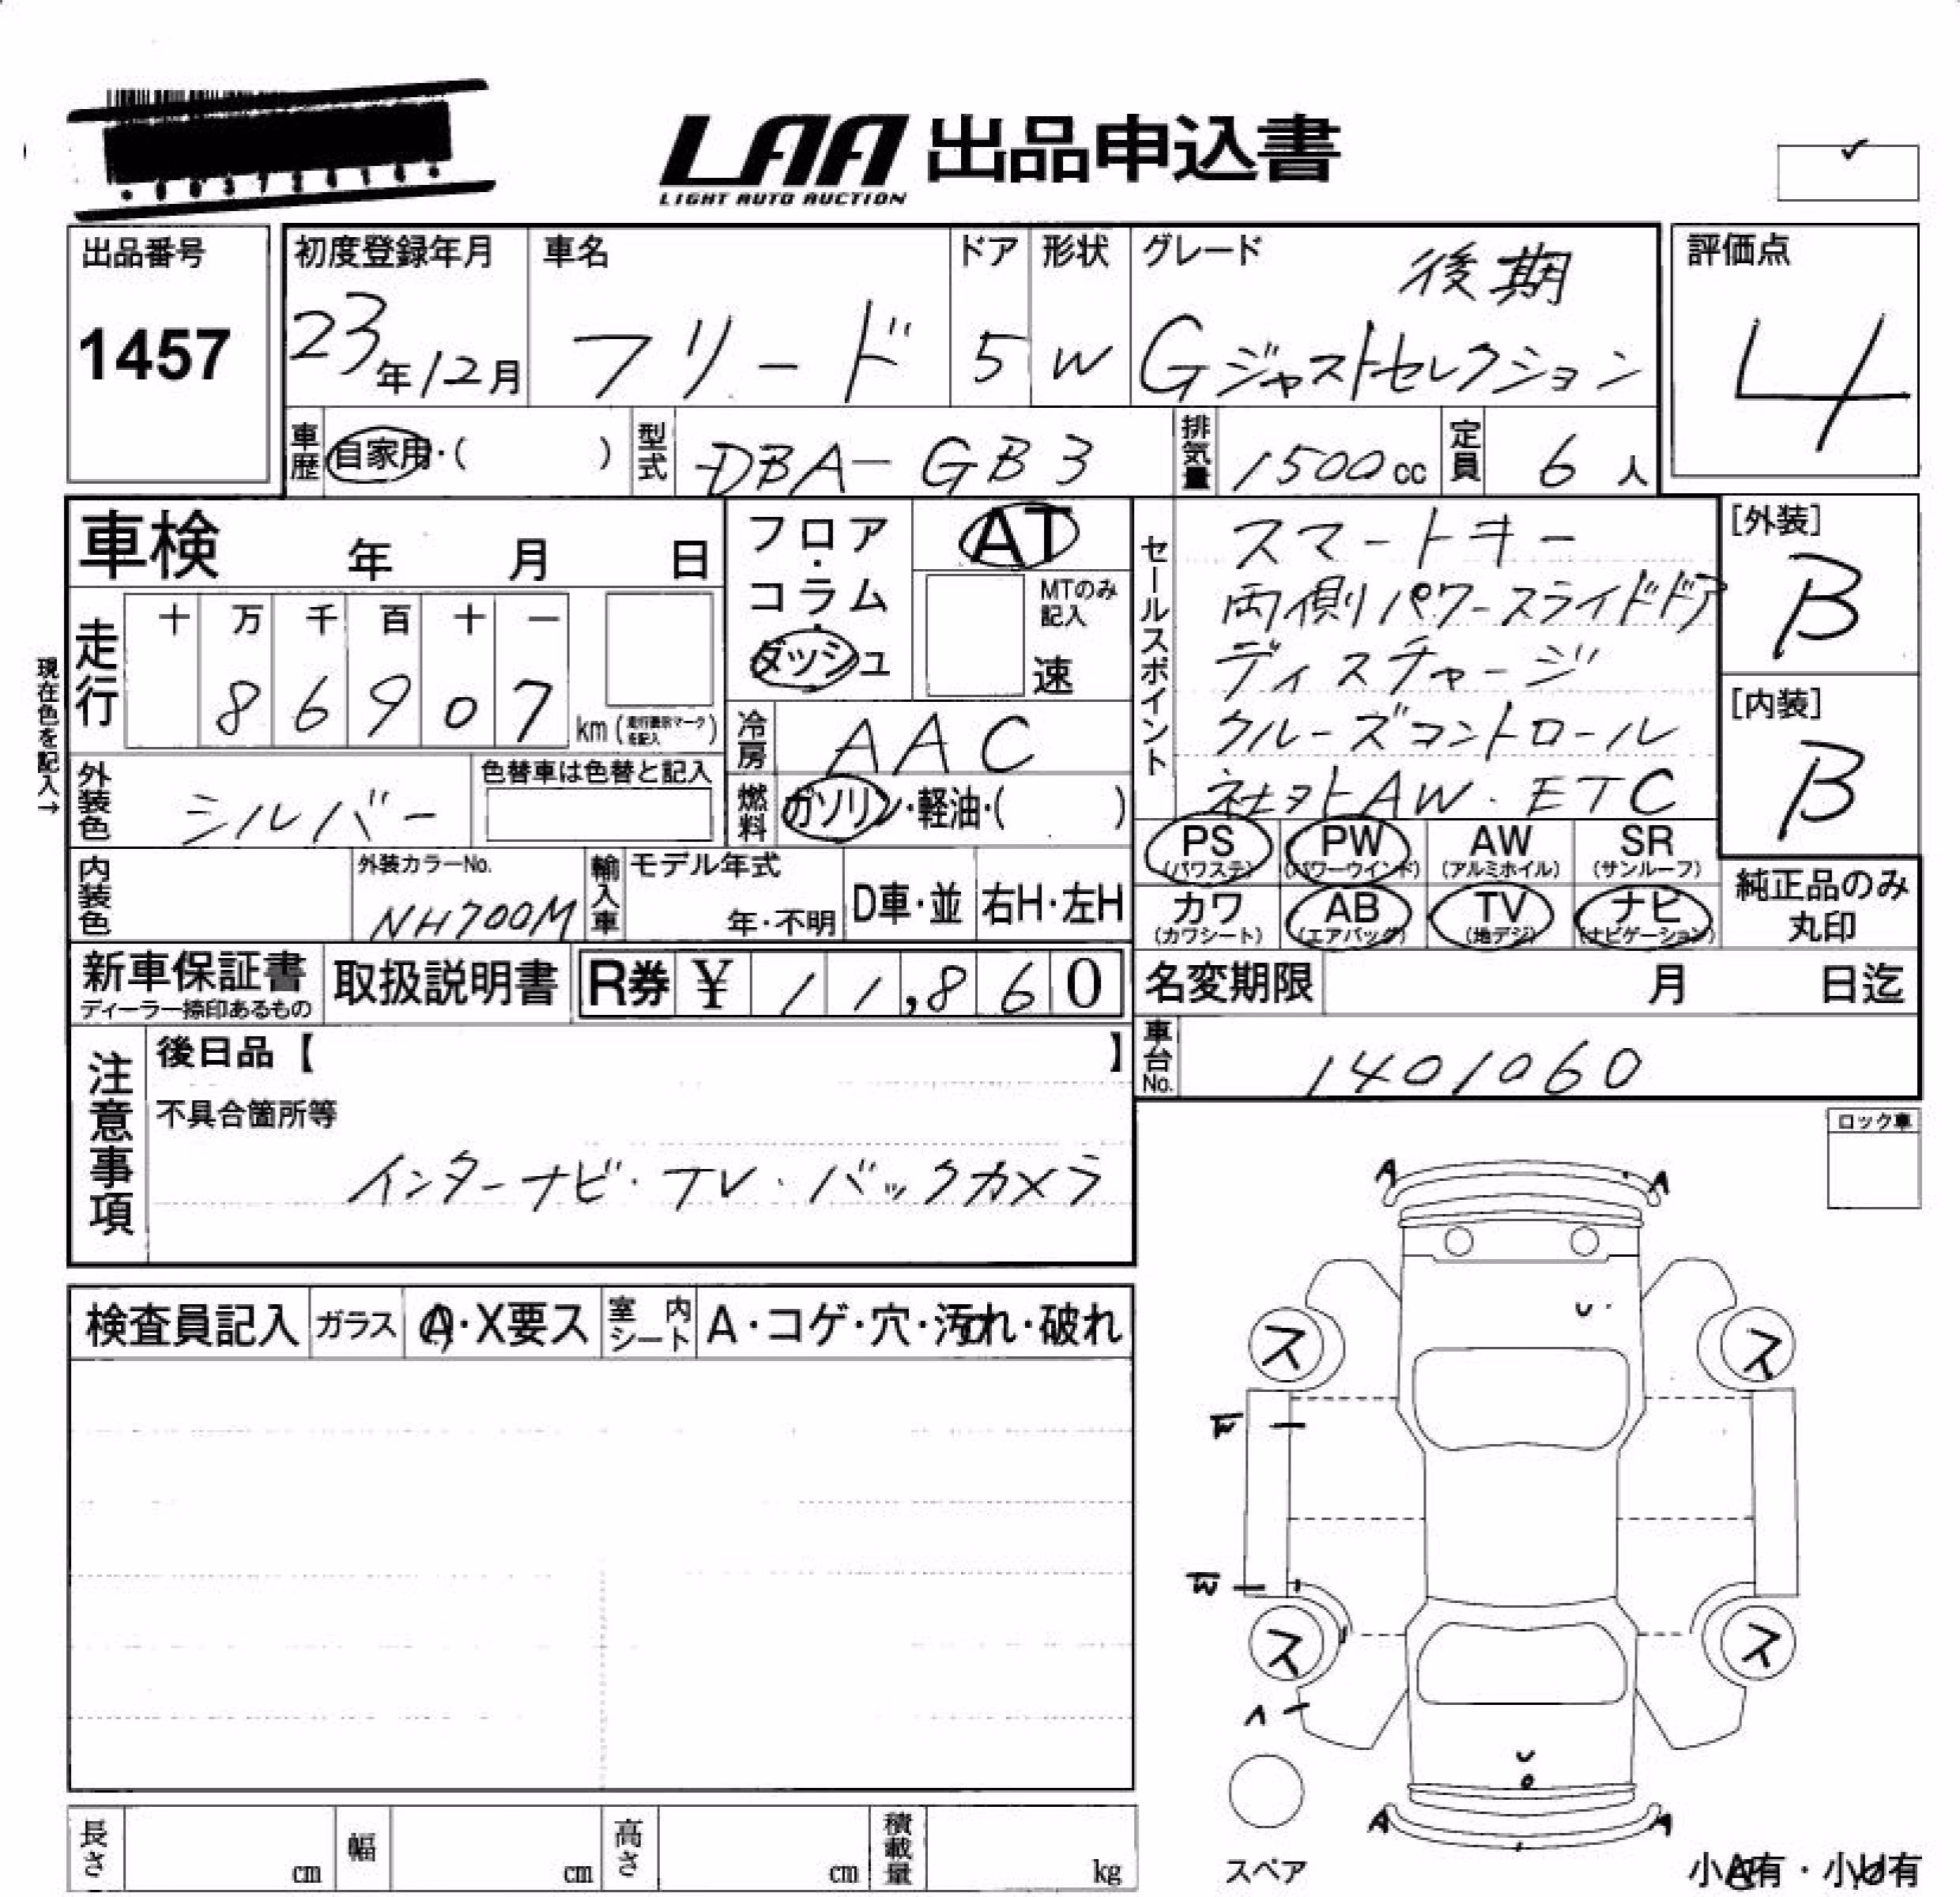 LAA 出品申込書
LIGHT AUTO AUCTION
出品番号
1457
初度登録年月
23年12月
車名
フリード
ドア
5
形状
W
グレード
後期
Gジャストセレクション
評価点
4
車歴
自家用・( )
型式
DBA-GB3
排気量
1500cc
定員
6人
車検 年 月 日
フロア・コラム・ダッシュ
AT
MTのみ記入
速
セールスポイント
スマートキー
両側パワースライドドア
ディスチャージ
クルーズコントロール
社外AW・ETC
[外装]
B
[内装]
B
現在色を記入→
走行
十 万 千 百 十 一
8 6 9 0 7
km (走行表示マークを記入)
冷房
AAC
外装色
シルバー
色替車は色替と記入
燃料
ガソリン・軽油・( )
PS (パワステ)
PW (パワーウインド)
AW (アルミホイル)
SR (サンルーフ)
カワ (カワシート)
AB (エアバッグ)
TV (地デジ)
ナビ (ナビゲーション)
純正品のみ丸印
内装色
外装カラーNo.
NH700M
輸入車
モデル年式
年・不明
D車・並
右H・左H
新車保証書
ディーラー捺印あるもの
取扱説明書
R券 ¥ 11,860
名変期限 月 日迄
車台No.
1401060
注意事項
後日品【 】
不具合箇所等
インターナビ・TV・バックカメラ
ロック車
検査員記入
ガラス
A・X要ス
室内シート
A・コゲ・穴・汚れ・破れ
A A
ス ス
W
W
ス ス
A A
スペア
小A有・小U有
長さ cm
幅 cm
高さ cm
積載量 kg